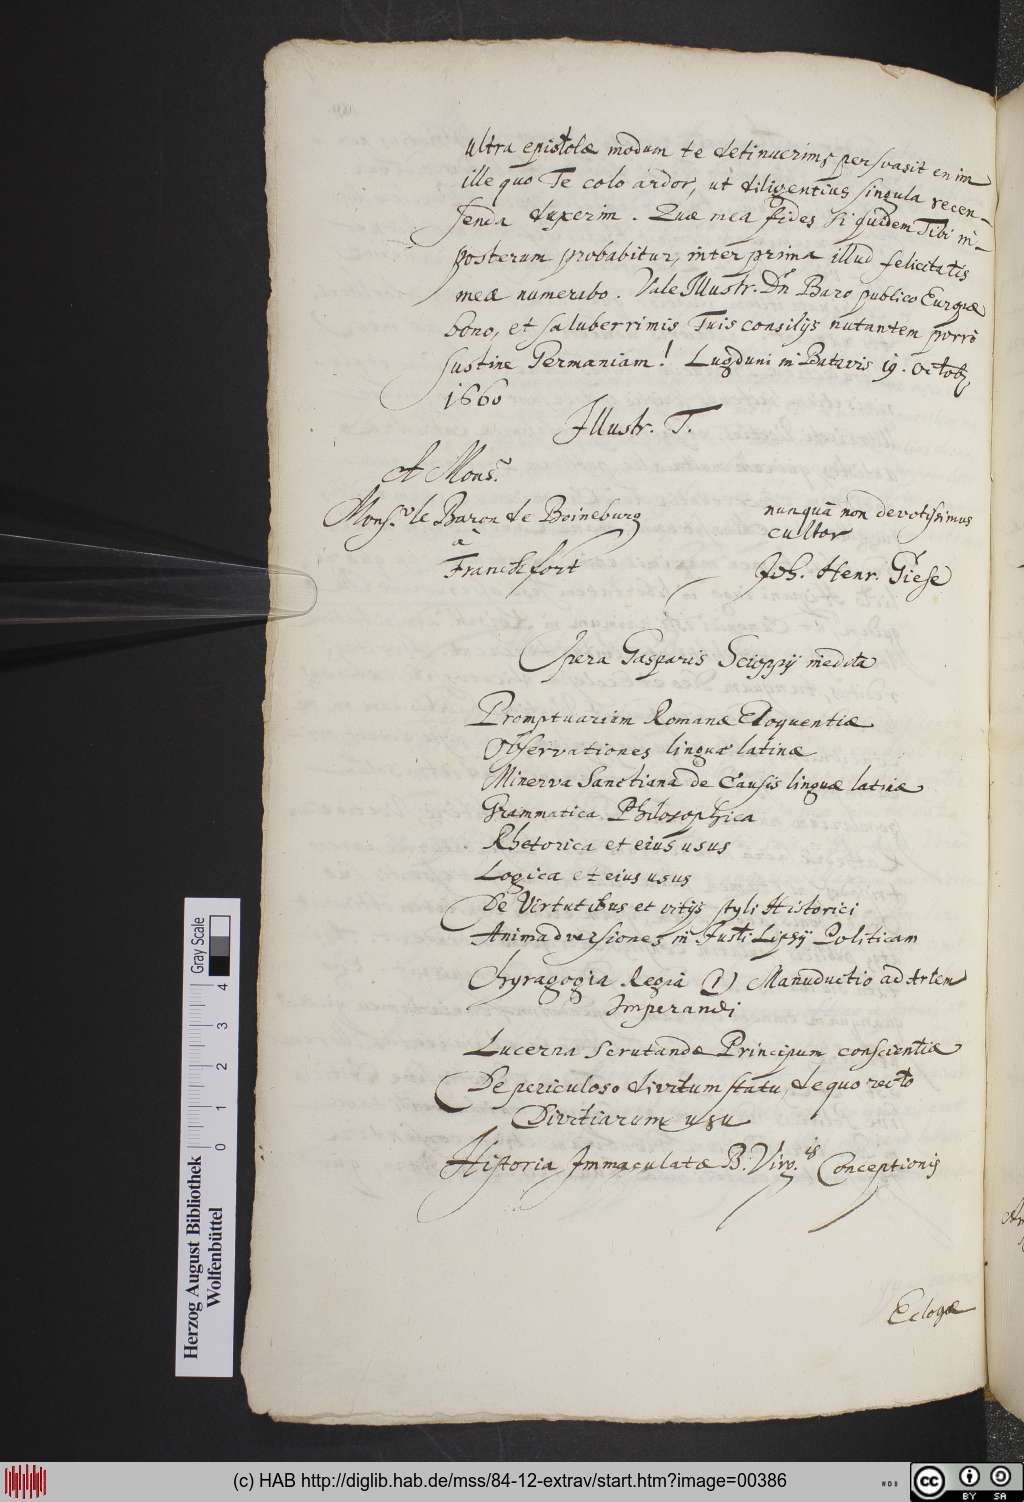 ultra epistolæ modum te detinuerim, persvasit enim
ille quo Te colo ardor, ut diligentius singula recen-
senda duxerim. Quæ mea fides si quidem Tibi in
posterum probabitur, inter prima illud felicitatis
meæ numerabo. Vale Illustr. Dn̄ Baro publico Europæ
bono, et saluberrimis Tuis consilijs nutantem porrò
sustine Germaniam! Lugduni in Batavis 19. Octobr
1660
Illustr. T.
A Mons.r
Mons.r le Baron de Boineburg
à
Franckfort
nunquā non devotissimus
cultor
Joh. Henr. Giese
Opera Gasparis Scioppij inedita
Promptuarium Romanæ Eloquentiæ
Observationes linguæ latinæ
Minerva Sanctiana de Causis linguæ latinæ
Grammatica Philosophica
Rhetorica et eius usus
Logica et eius usus
De Virtutibus et vitijs styli Historici
Animadversiones in Justi Lipsij Politicam
Chyragogia Regia (1) Manuductio ad Artem
Imperandi
Lucerna Scrutandæ Principum conscientiæ
De periculoso divitum statu, de quo recto
Divitiarum usu
Historia Immaculatæ B. Virg.is Conceptionis
Eclogæ
Gray Scale
0 1 2 3 4
Herzog August Bibliothek
Wolfenbüttel
(c) HAB http://diglib.hab.de/mss/84-12-extrav/start.htm?image=00386
cc BY SA